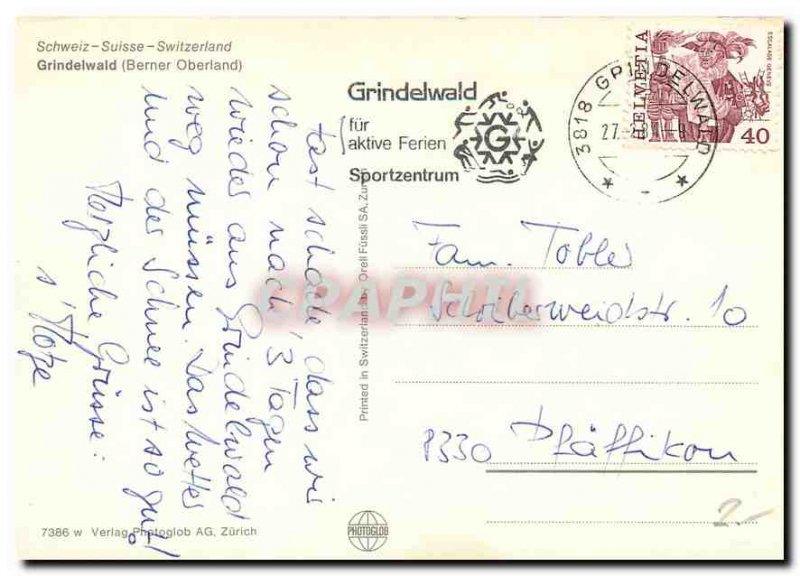 Schweiz–Suisse–Switzerland
Grindelwald (Berner Oberland)
Grindelwald
für
aktive Ferien
Sportzentrum
G
3818 GRINDELWALD
27.
HELVETIA
ESCALADE GENEVE
40
fast schade, dass wir
schon nach 3 Tagen
wieder aus Grindelwald
weg müssen. Das Wetter
und der Schnee ist so gut!
Herzliche Grüsse:
s'
Fam. Tobler
Schreiberweidstr. 10
8330 Pfäffikon
Printed in Switzerland by Orell Füssli SA, Zürich
CPAPHIL
7386 w Verlag Photoglob AG, Zürich
PHOTOGLOB
2.-